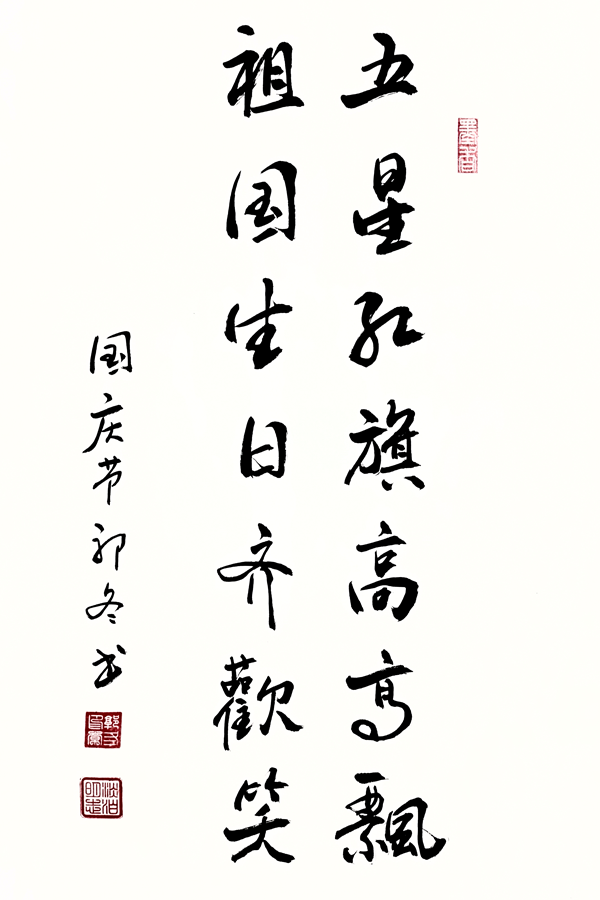 五星红旗高高飘
祖国生日齐歡笑
国庆节郭冬书
淡泊明志